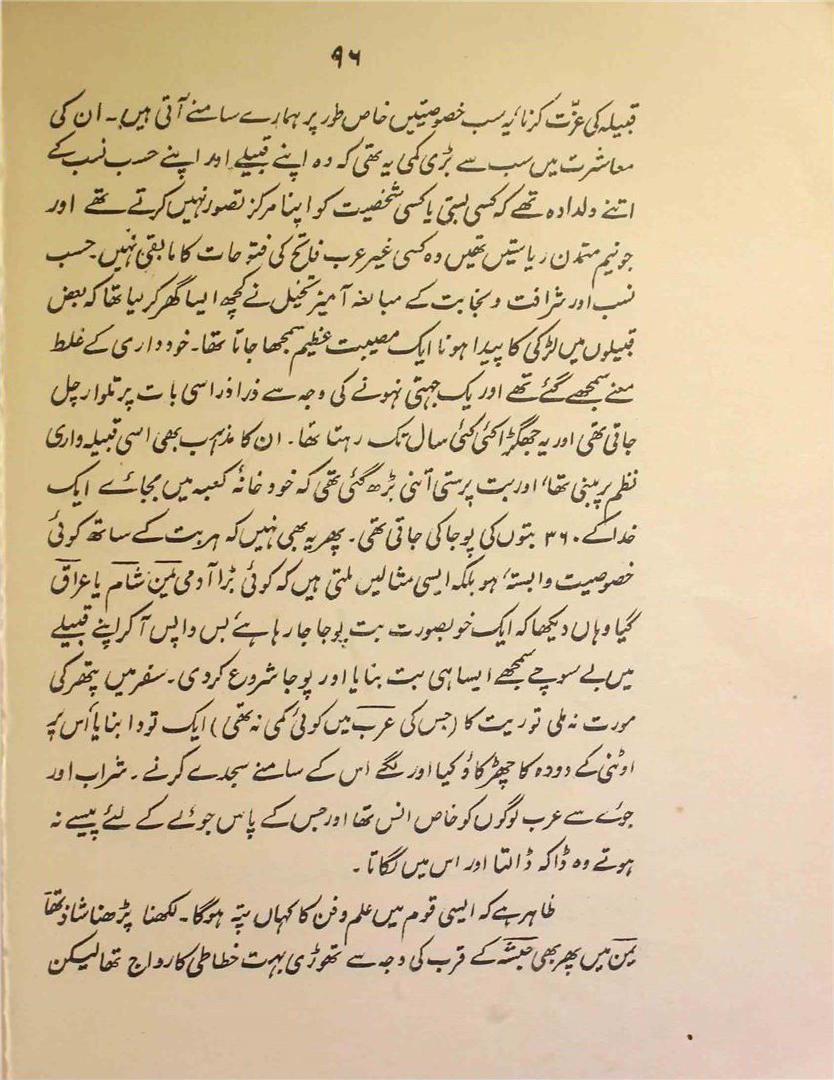 ۹۶
قبیلہ کی عزّت کرنا، یہ سب خصوصیتیں خاص طور پر ہمارے سامنے آتی ہیں۔ ان کی
معاشرت میں سب سے بڑی کمی یہ تھی کہ وہ اپنے قبیلے اور اپنے حسب نسب کے
اتنے دلدادہ تھے کہ کسی بستی یا کسی شخصیت کو اپنا مرکز تصور نہیں کرتے تھے اور
جو نیم متمدن ریاستیں تھیں وہ کسی غیر عرب فاتح کی فتوحات کا مابقی نہیں۔ حسب
نسب اور شرافت و نجابت کے مبالغہ آمیز تخیل نے کچھ ایسا گھر کر لیا تھا کہ بعض
قبیلوں میں لڑکی کا پیدا ہونا ایک مصیبت عظیم سمجھا جاتا تھا۔ خود داری کے غلط
معنے سمجھے گئے تھے اور یک جہتی نہونے کی وجہ سے ذرا ذرا سی بات پر تلوار چل
جاتی تھی اور یہ جھگڑا کئی کئی سال تک رہتا تھا۔ ان کا مذہب بھی اسی قبیلہ واری
نظم پر مبنی تھا، اور بت پرستی اتنی بڑھ گئی تھی کہ خود خانۂ کعبہ میں بجائے ایک
خدا کے ۳۶۰ بتوں کی پوجا کی جاتی تھی۔ پھر یہ بھی نہیں کہ ہر بت کے ساتھ کوئی
خصوصیت وابستہ ہو بلکہ ایسی مثالیں ملتی ہیں کہ کوئی بڑا آدمی یمن شام یا عراق
گیا وہاں دیکھا کہ ایک خوبصورت بت پوجا جا رہا ہے بس واپس آ کر اپنے قبیلے
میں بے سوچے سمجھے ایسا ہی بت بنایا اور پوجا شروع کر دی۔ سفر میں پتھر کی
مورت نہ ملی تو ریت کا (جس کی عرب میں کوئی کمی نہ تھی) ایک تودا بنایا اُس پر
اونٹنی کے دودہ کا چھڑکاؤ کیا اور لگے اس کے سامنے سجدے کرنے۔ شراب اور
جوئے سے عرب لوگوں کو خاص انس تھا اور جس کے پاس جوئے کے لئے پیسے نہ
ہوتے وہ ڈاکہ ڈالتا اور اس میں لگاتا۔
ظاہر ہے کہ ایسی قوم میں علم و فن کا کہاں پتہ ہوگا۔ لکھنا پڑھنا شاذ تھا
یمن میں پھر بھی حبشہ کے قرب کی وجہ سے تھوڑی بہت خطاطی کا رواج تھا لیکن